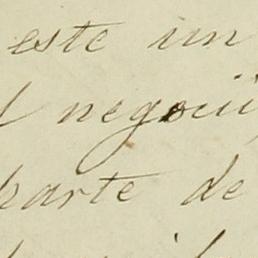 este un
negocii
parte de